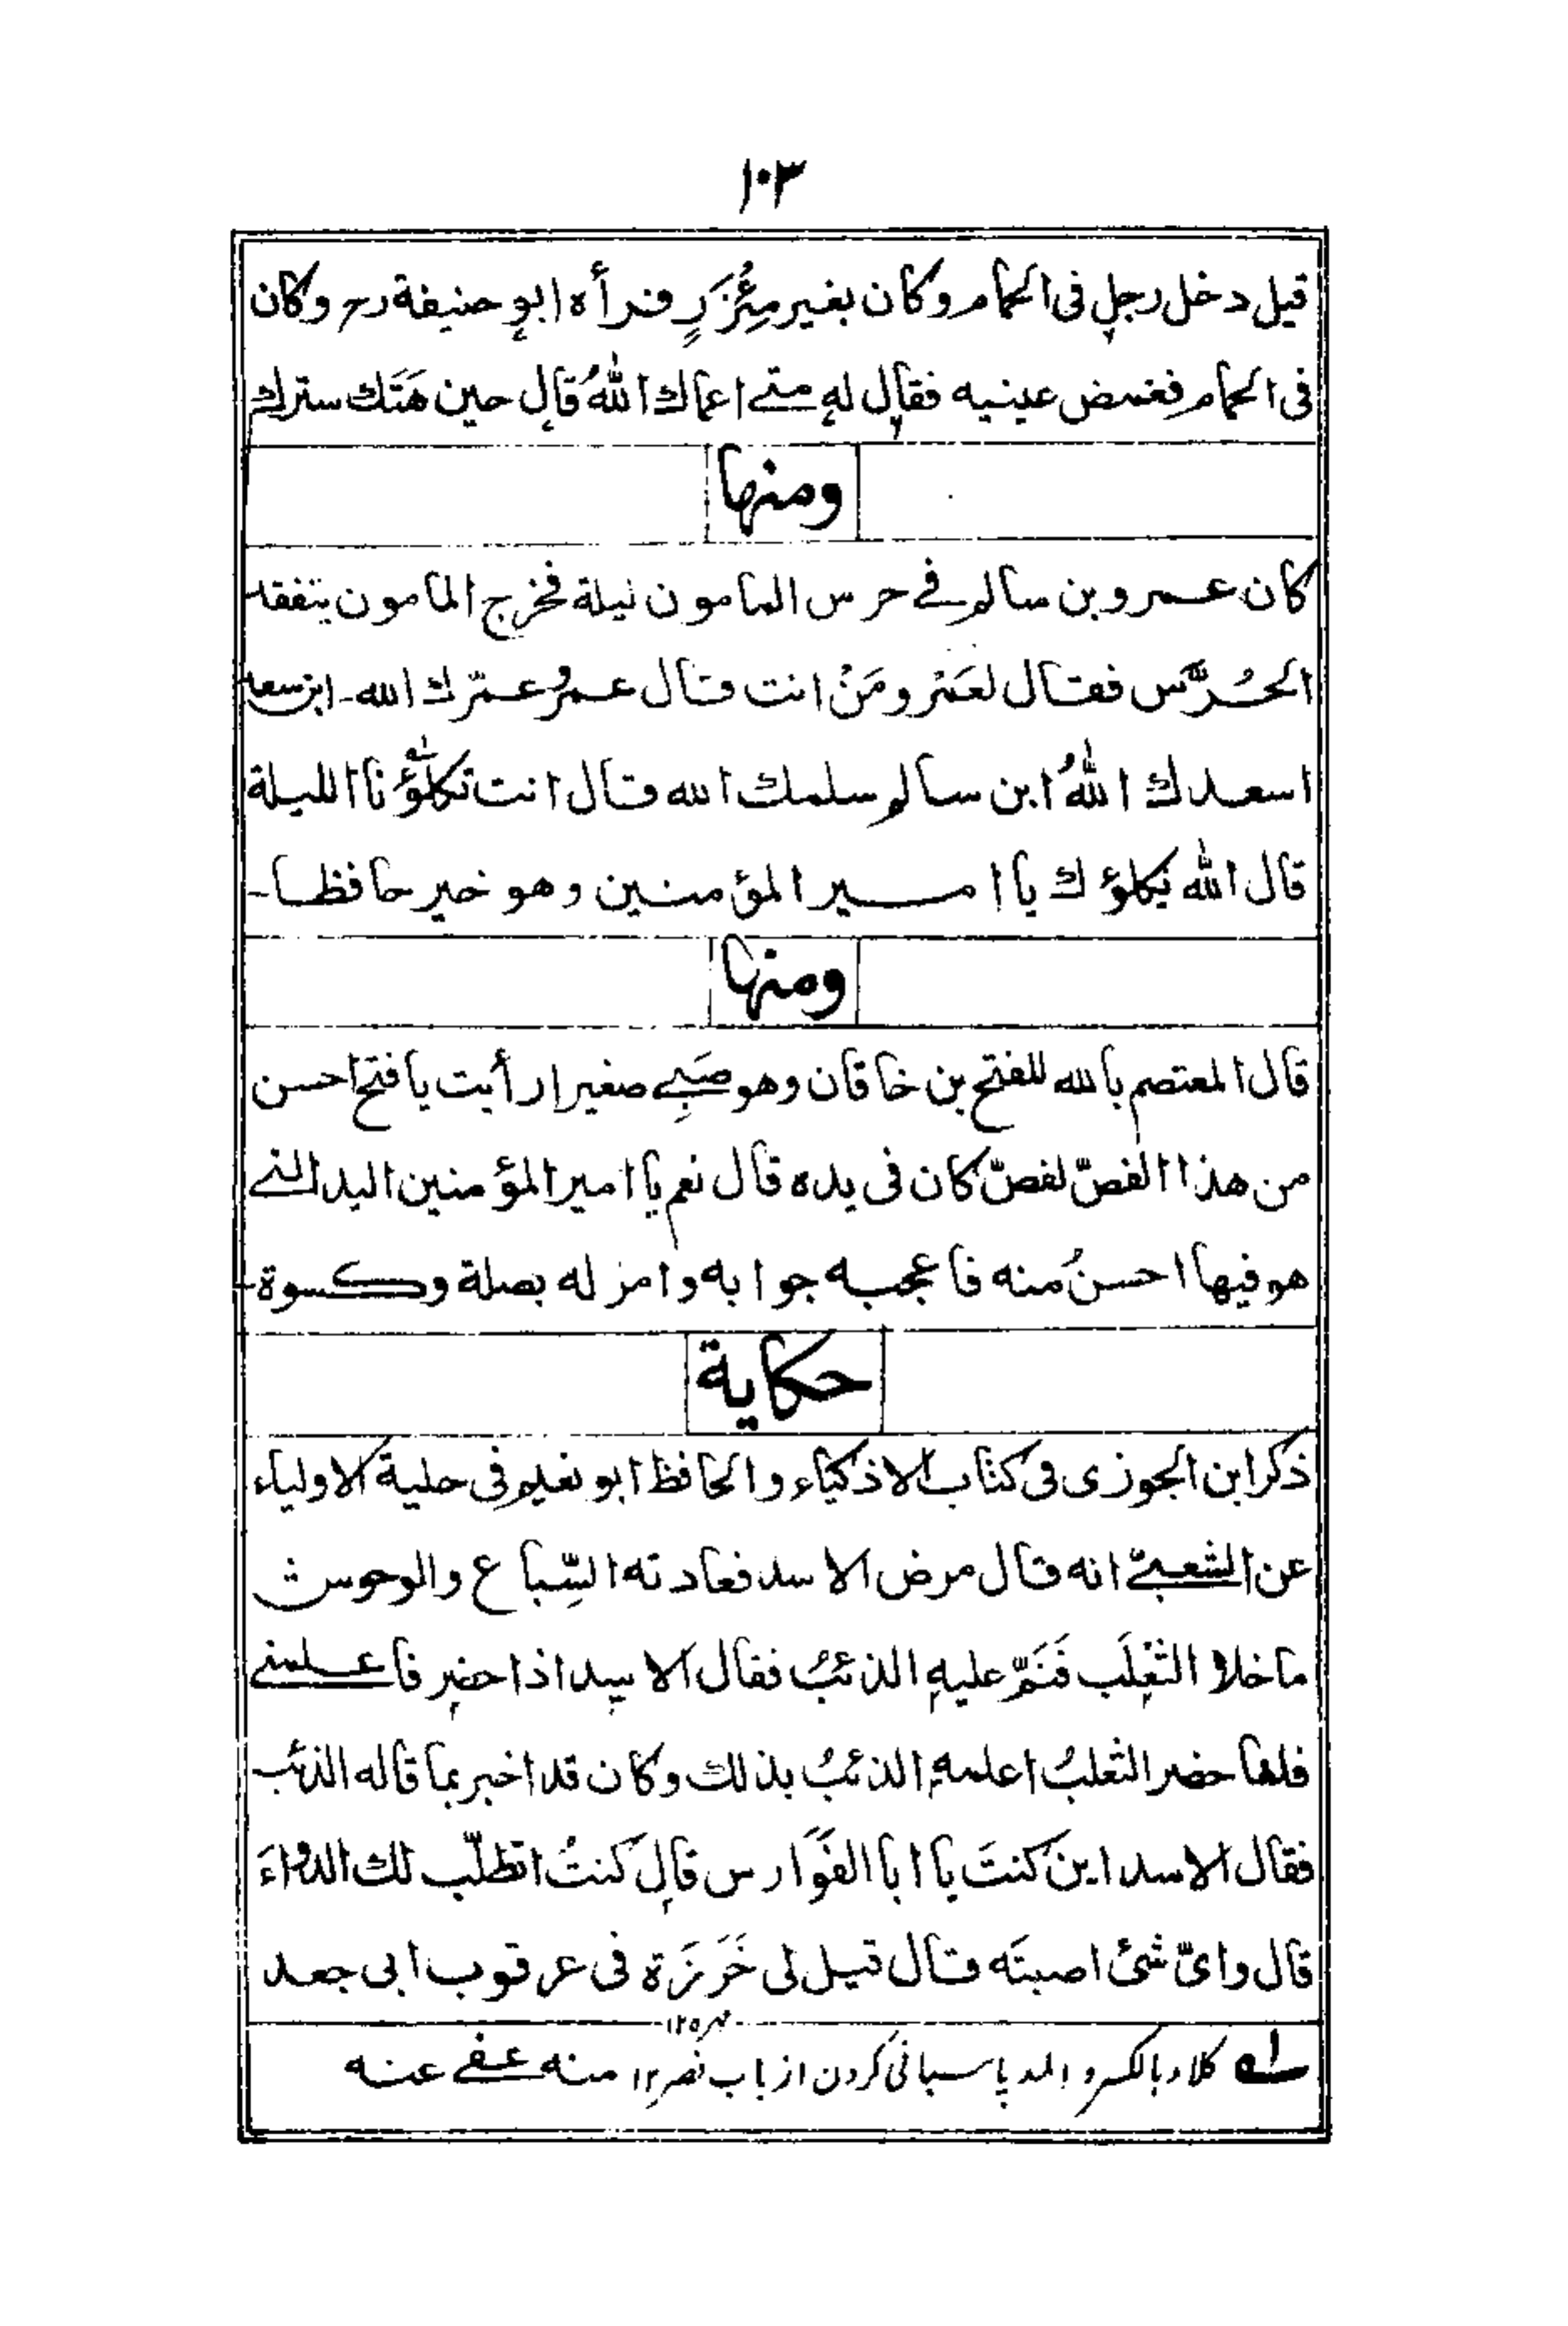 ١٠٣
قيل دخل رجل فى الحمام وكان بغير مِئْزَرٍ فرأه ابو حنيفة رح وكان
فى الحمام فغمض عينيه فقال له متى اعماك اللهُ قال حين هَتَك سترك
ومنها
كان عمرو بن سالم فى حرس المامون ليلة فخرج المامون يتفقد
الحُرَّس فقال لعَمْرو مَنْ انت قال عمرٌو عمّرك الله۔ ابن سعد
اسعدك اللهُ ابن سالم سلمك الله قال انت تكلؤنا الليلة
قال الله يكلؤك يا امير المؤمنين وهو خير حافظا۔
ومنها
قال المعتصم بالله للفتح بن خاقان وهو صَبِى صغير ارأيت يا فتح احسن
من هذا الفصّ لفصّ كان فى يده قال نعم يا امير المؤمنين اليد التى
هو فيها احسنُ منه فاعجبه جوابه وامر له بصلة وكسوة۔
حكاية
ذكر ابن الجوزى فى كتاب الاذكياء والحافظ ابو نعيم فى حلية الاولياء
عن الشعبىّ انه قال مرض الاسد فعادته السِّباع والوحوش
ما خلا الثَعْلَب فَنَمّ عليه الذئبُ فقال الاسد اذا حضر فاعلمنى
فلما حضر الثعلبُ اعلمه الذئبُ بذلك وكان قد اخبر بما قاله الذئب
فقال الاسد اين كنتَ يا ابا الفَوَارس قال كنتُ اتطلّب لك الدواءَ
قال واىّ شئ اصبتَه قال قيل لى خَرَزَة فى عرقوب ابى جعد
له كلاء بالكسر و المد پاسبانى كردن از باب نصر ١٢ منه عفى عنه